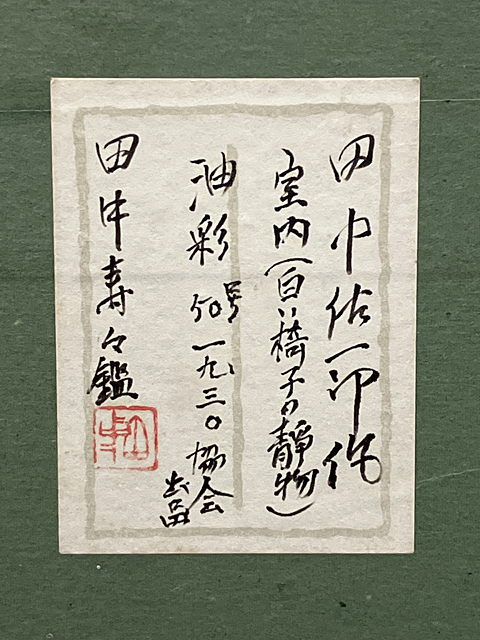 田中佐一郎作
室内（白い椅子の靜物）
油彩 50号 一九三〇協会
出品
田中寿々鑑